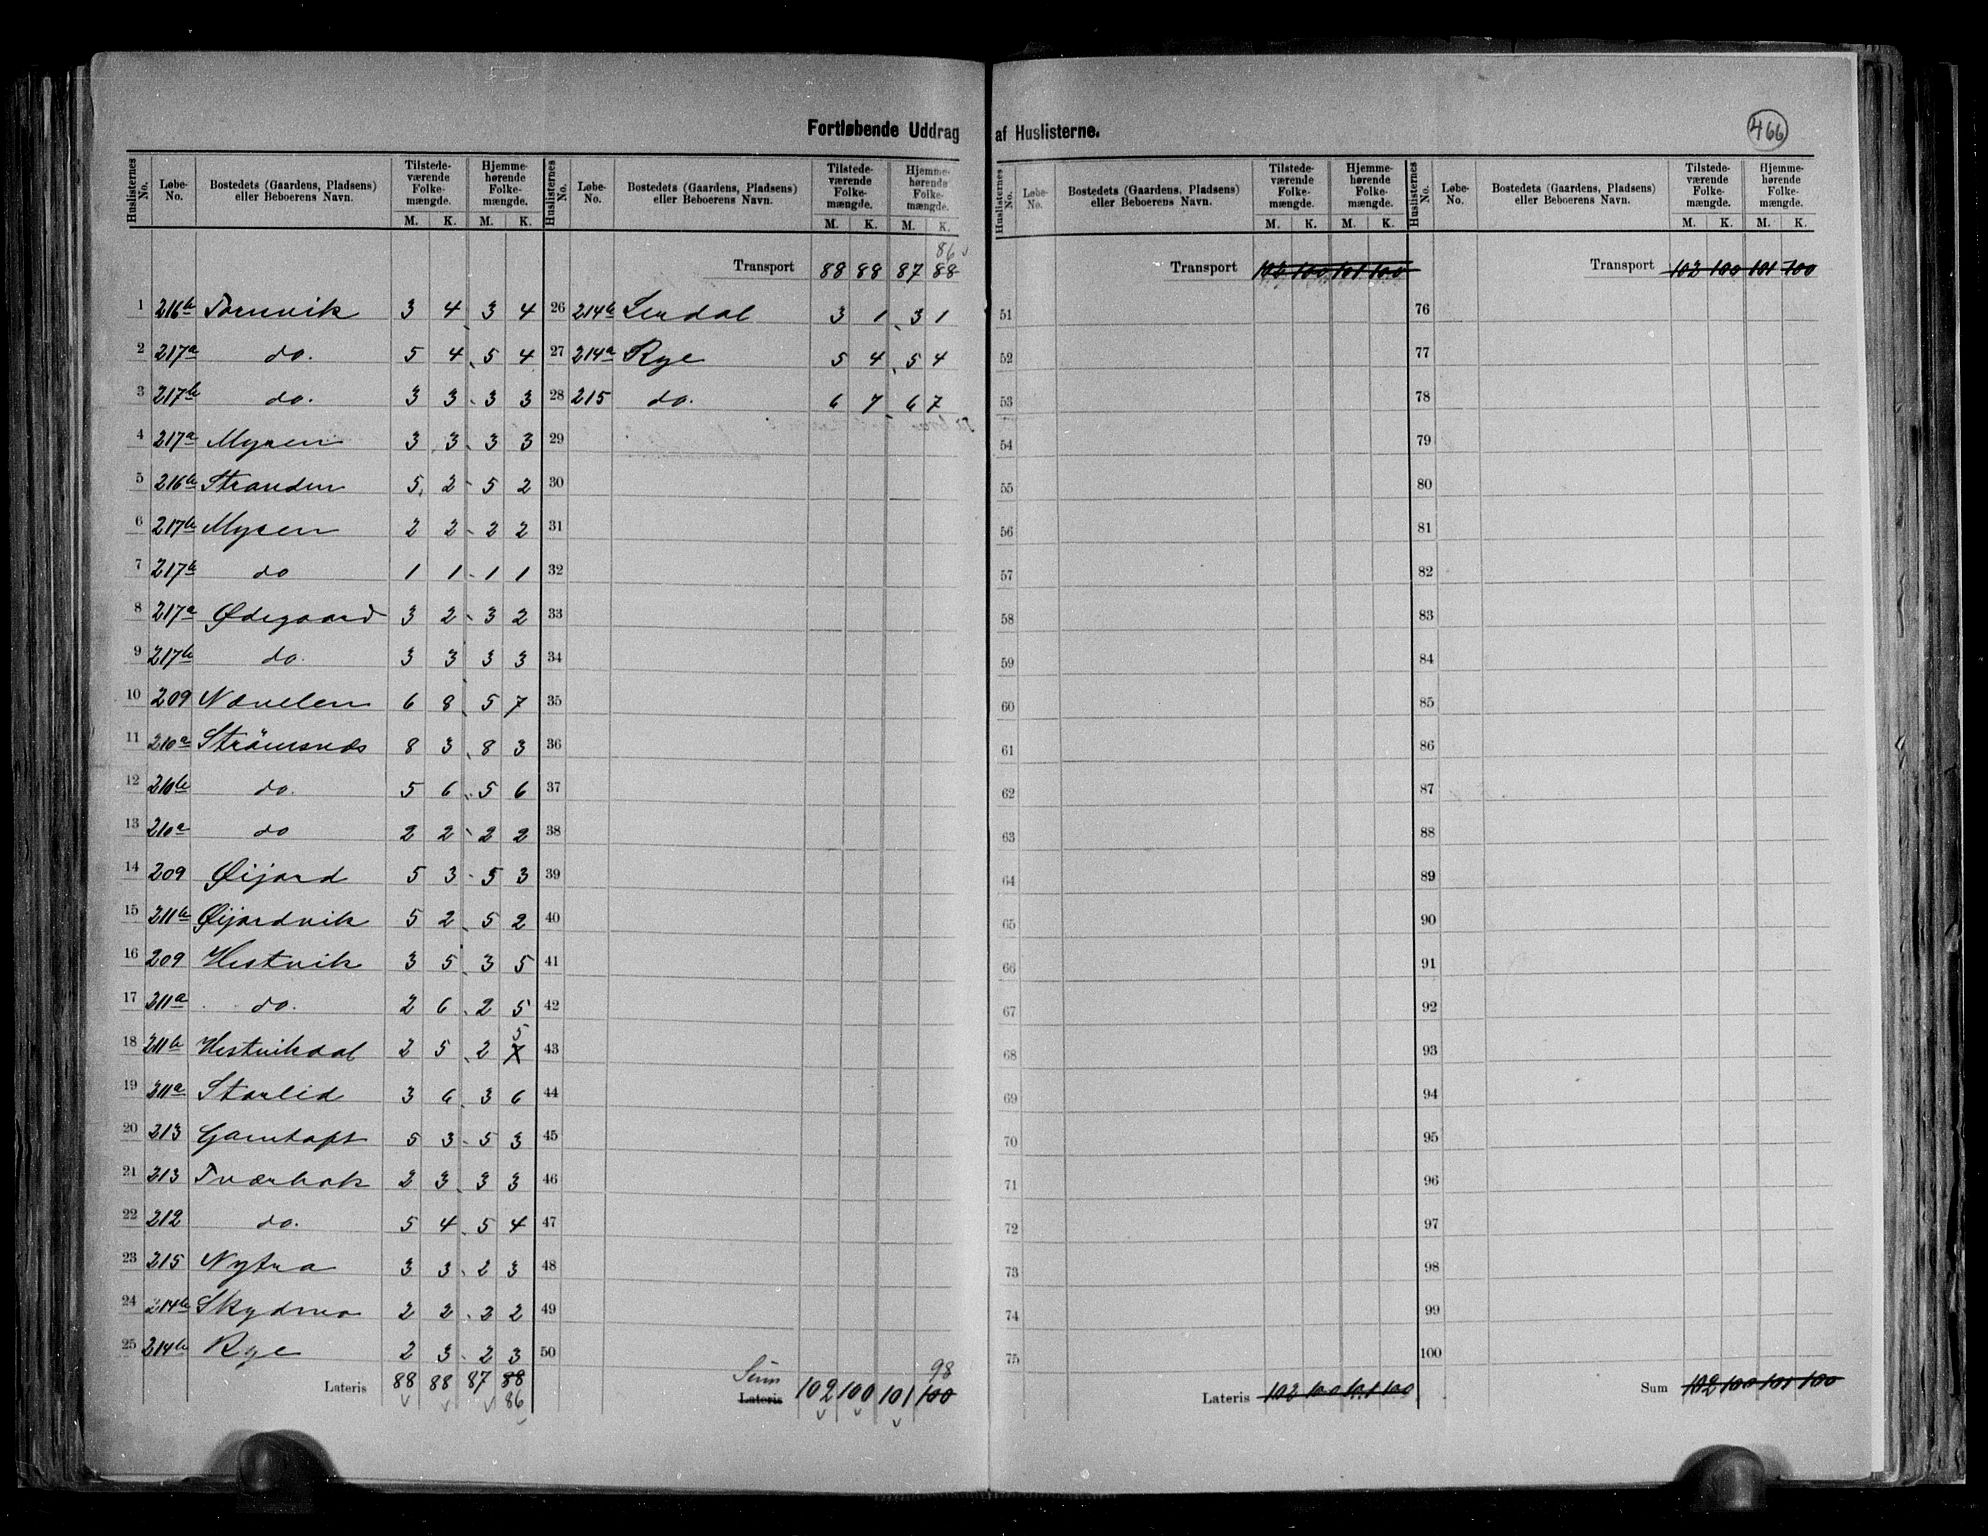 Fortløbende Uddrag af Huslisterne.
466
Huslisternes No. | Løbe-No. | Bostedets (Gaardens, Pladsens) eller Beboerens Navn. | Tilstedeværende Folkemængde. M. K. | Hjemmehørende Folkemængde. M. K.
1 216b Tornvik 3 4 3 4
2 217a do. 5 4 5 4
3 217b do. 3 3 3 3
4 217a Myren 3 3 3 3
5 216b Stranden 5 2 5 2
6 217b Myren 2 2 2 2
7 217b do 1 1 1 1
8 217a Ødegaard 3 2 3 2
9 217b do. 3 3 3 3
10 209 Nævelen 6 8 5 7
11 210a Strömsnæs 8 3 8 3
12 210b do. 5 6 5 6
13 210a do 2 2 2 2
14 209 Øijord 5 3 5 3
15 211b Øijordvik 5 2 5 2
16 209 Hestvik 3 5 3 5
17 211a do. 2 6 2 5
18 211b Hestvikdal 2 5 2 5
19 211a Storlid 3 6 3 6
20 213 Gamtoft 5 3 5 3
21 213 Tværbak 2 3 3 3
22 212 do. 5 4 5 4
23 215 Nytra 3 3 2 3
24 214b Skydmo 2 2 2 2
25 214b Rye 2 3 2 3
Lateris 88 88 87 88
86
Huslisternes No. | Løbe-No. | Bostedets (Gaardens, Pladsens) eller Beboerens Navn. | Tilstedeværende Folkemængde. M. K. | Hjemmehørende Folkemængde. M. K.
86
Transport 88 88 87 88
26 214b Lerdal 3 1 3 1
27 214a Rye 5 4 5 4
28 215 do. 6 7 6 7
29
30
31
32
33
34
35
36
37
38
39
40
41
42
43
44
45
46
47
48
49
50
Sum 98
Lateris 102 100 101 100
Huslisternes No. | Løbe-No. | Bostedets (Gaardens, Pladsens) eller Beboerens Navn. | Tilstedeværende Folkemængde. M. K. | Hjemmehørende Folkemængde. M. K.
Transport 102 100 101 100
51
52
53
54
55
56
57
58
59
60
61
62
63
64
65
66
67
68
69
70
71
72
73
74
75
Lateris 102 100 101 100
Huslisternes No. | Løbe-No. | Bostedets (Gaardens, Pladsens) eller Beboerens Navn. | Tilstedeværende Folkemængde. M. K. | Hjemmehørende Folkemængde. M. K.
Transport 102 100 101 100
76
77
78
79
80
81
82
83
84
85
86
87
88
89
90
91
92
93
94
95
96
97
98
99
100
Sum 102 100 101 100